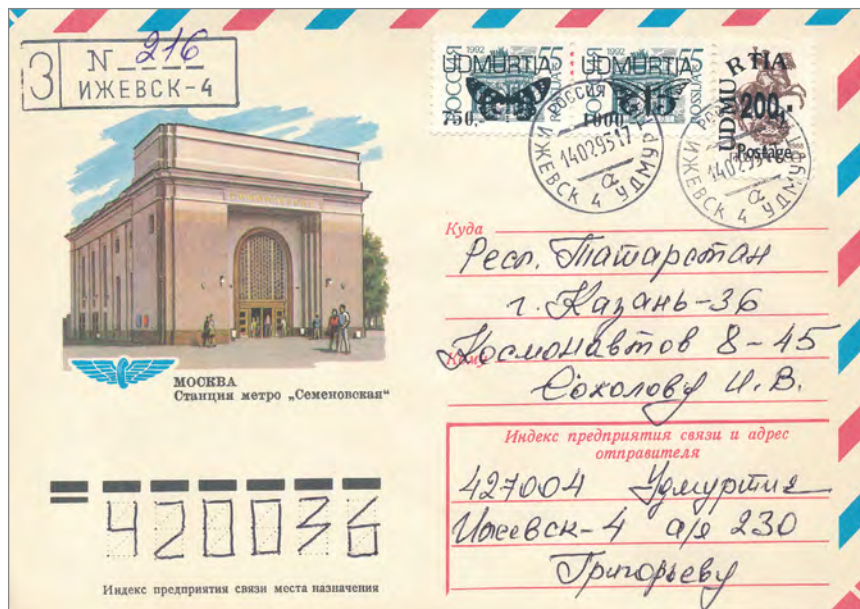 З N 216
ИЖЕВСК-4
РОССИЯ 1992 55
UDMURTIA
ROSSIJA
750.-
РОССИЯ 1992 55
UDMURTIA
ROSSIJA
1000.-
UDMURTIA
200,-
Postage
РОССИЯ
14029517
а
ИЖЕВСК 4 УДМУР
РОССИЯ
14029517
а
ИЖЕВСК 4 УДМУР
МОСКВА
Станция метро „Семеновская“
Куда
Респ. Татарстан
г. Казань-36
Кому
Космонавтов 8-45
Соколову И.В.
Индекс предприятия связи и адрес
отправителя
427004 Удмуртия
Ижевск-4 а/я 230
Григорьеву
420036
Индекс предприятия связи места назначения